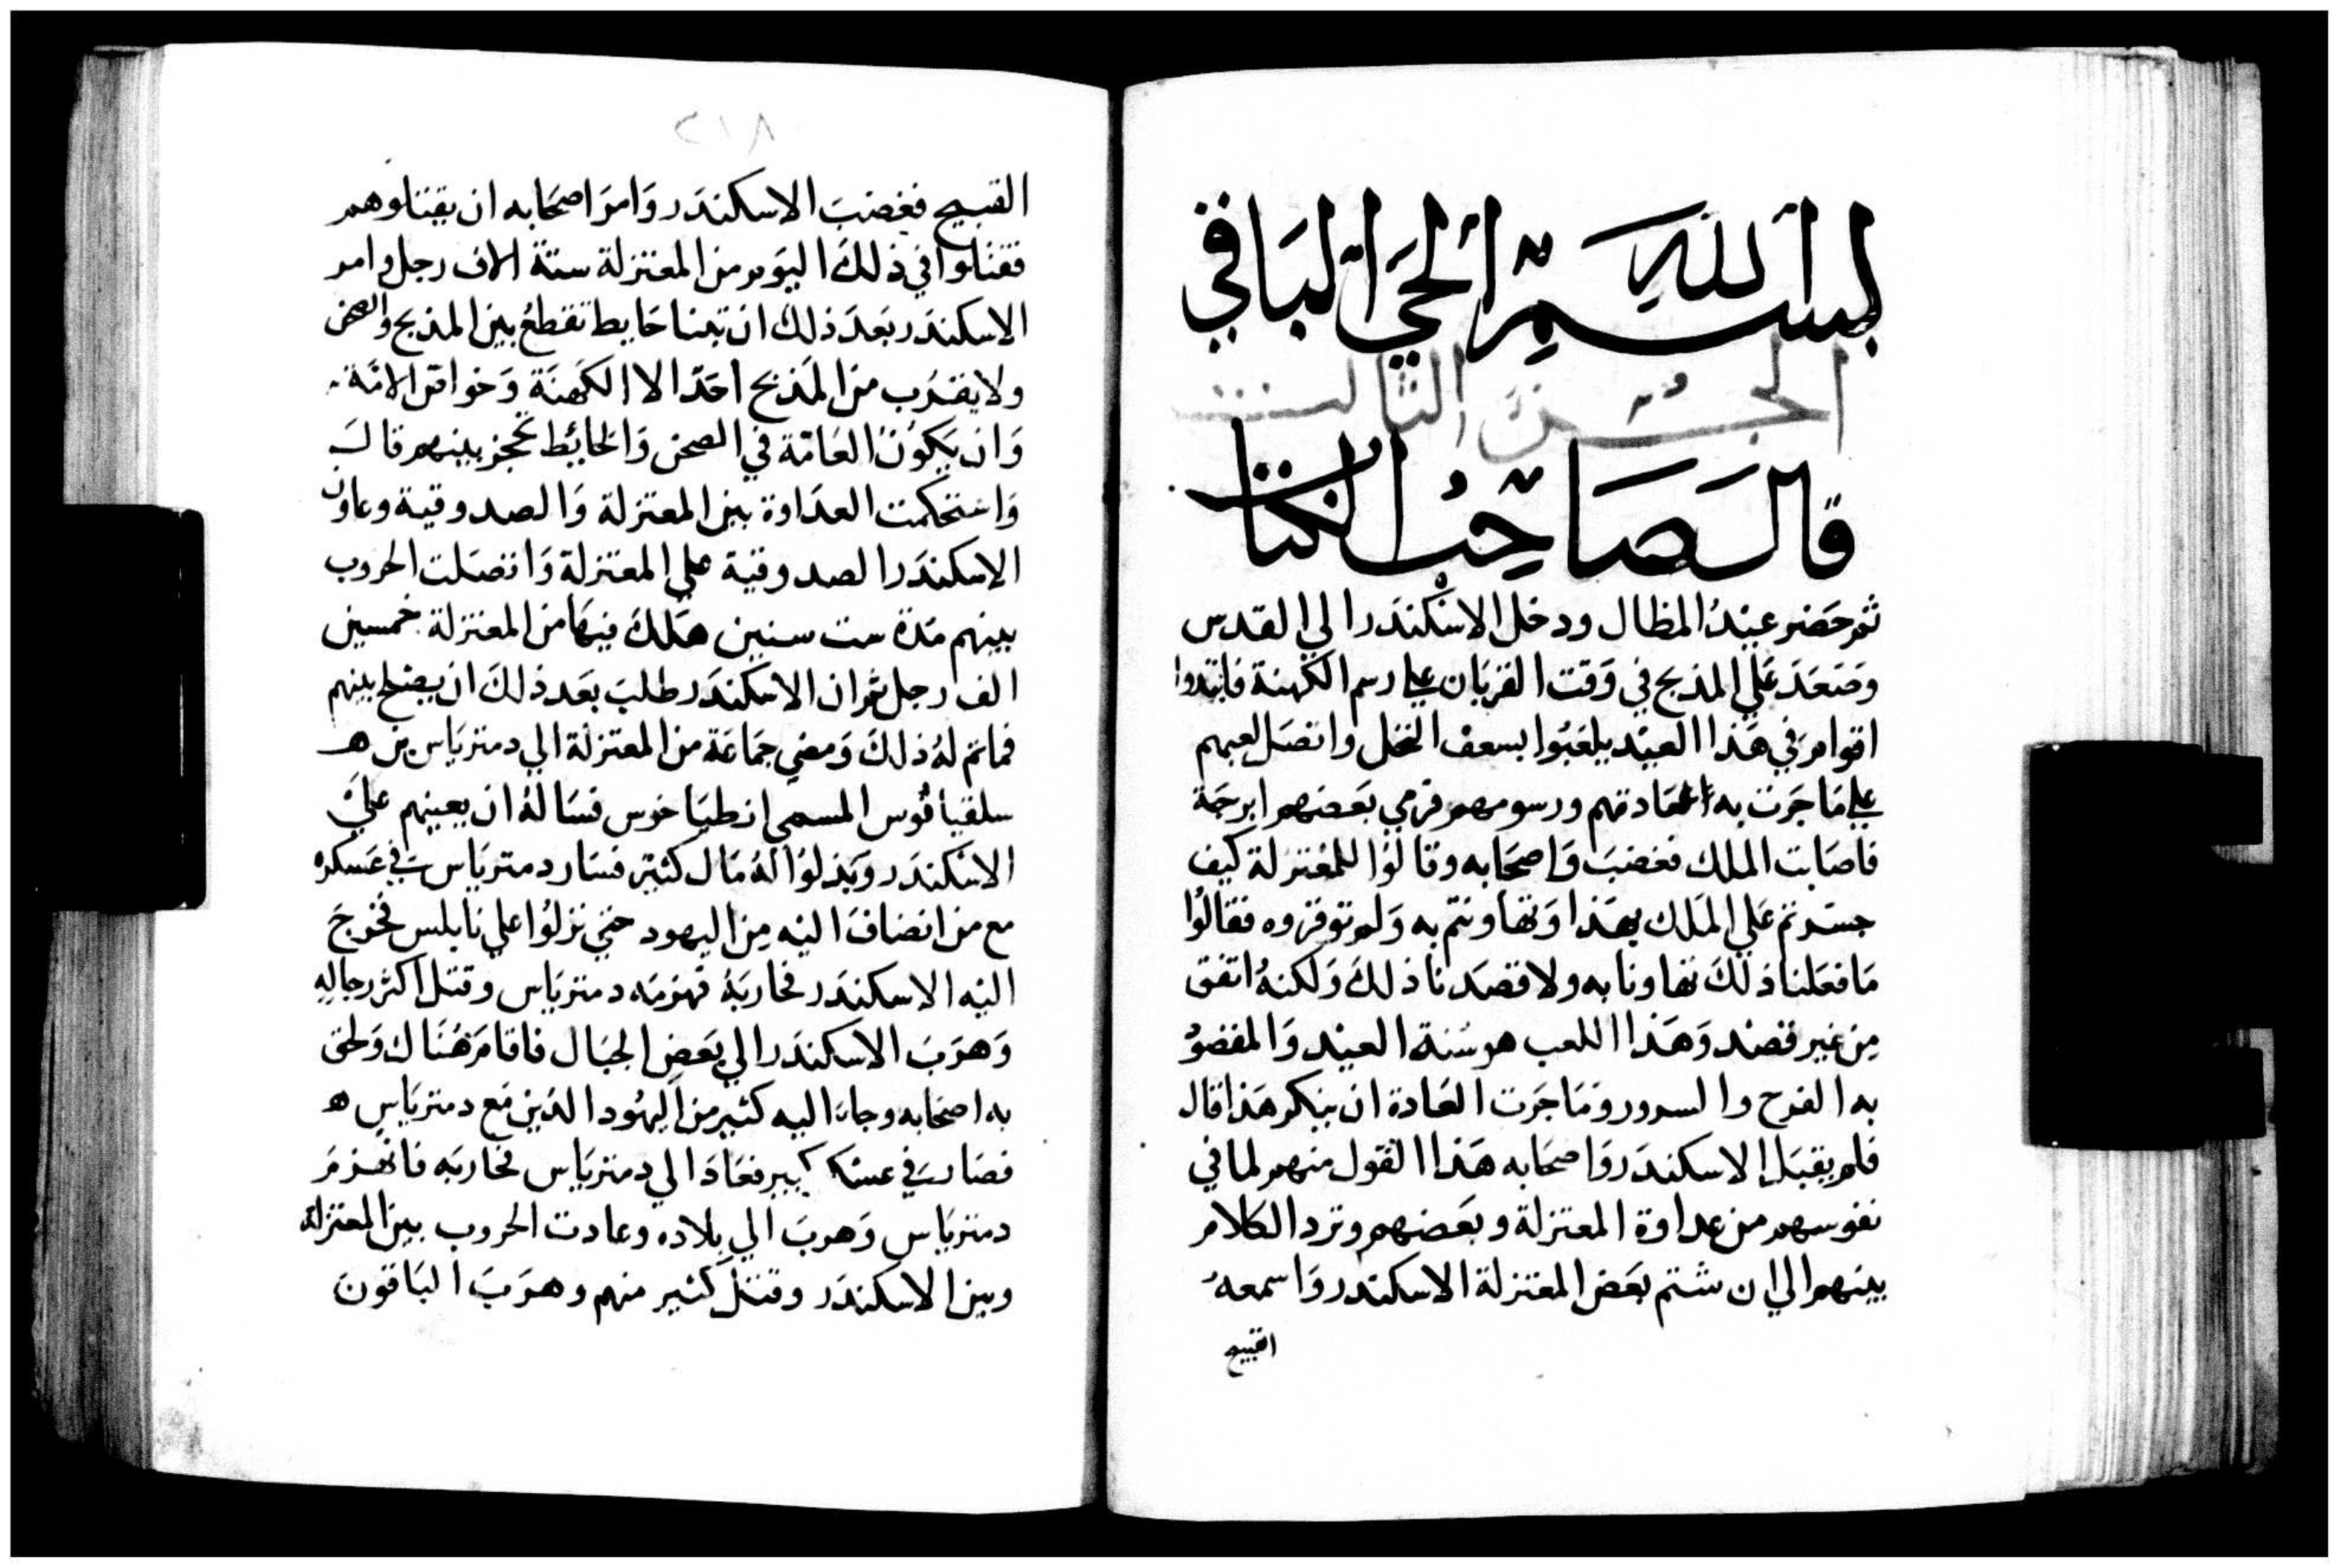 بسم الله الحي الباقي
الجزء الثالث
قال صاحب الكتاب
ثم حضر عيد المظال ودخل الاسكندر الي القدس
وصعد علي المذبح في وقت القربان علي رسم الكهنة فابتدوا
اقوام في هذا العيد يلعبوا بسعف النخل واتصل لعبهم
علي ما جرت به عادتهم ورسومهم فرمي بعضهم ابرجة
فاصابت الملك فغضب واصحابه وقالوا للمعتزلة كيف
جسرتم علي الملك بهذا وتهاونتم به ولم توقروه فقالوا
ما فعلنا ذلك تهاونا به ولا قصدنا ذلك ولكنه اتفق
من غير قصد وهذا اللعب هو سنة العيد والمقصود
به الفرح والسرور وما جرت العادة ان ينكر هذا قال
فلم يقبل الاسكندر واصحابه هذا القول منهم لما في
نفوسهم من عداوة المعتزلة وبعضهم وترد الكلام
بينهم الي ان شتم بعض المعتزلة الاسكندر واسمعه
القبيح
٢١٨
القبيح فغضب الاسكندر وامر اصحابه ان يقتلوهم
فقتلوا في ذلك اليوم من المعتزلة ستة الاف رجل وامر
الاسكندر بعد ذلك ان تبنا حايط تقطع بين المذبح والصحن
ولا يقرب من المذبح احدا الا الكهنة وخواص الامة
وان يكون العامة في الصحن والحائط تحجز بينهم قال
واستحكمت العداوة بين المعتزلة والصدوقية وعاون
الاسكندر الصدوقية علي المعتزلة واتصلت الحروب
بينهم مدة ست سنين هلك فيها من المعتزلة خمسين
الف رجل ثم ان الاسكندر طلب بعد ذلك ان يصلح بينهم
فما تم له ذلك ومضي جماعة من المعتزلة الي دمترياس بن
سلقياقوس المسمي انطياخوس فسالة ان يعينهم علي
الاسكندر وبذلوا له مال كثير فسار دمترياس في عسكره
مع من انضاف اليه من اليهود حتي نزلوا علي نابلس فخرج
اليه الاسكندر فحاربه فهزمه دمترياس وقتل اكثر رجاله
وهرب الاسكندر الي بعض الجبال فاقام هناك ولحق
به اصحابه وجاء اليه كثير من اليهود الذين مع دمترياس
فصار في عسكر كبير فعاد الي دمترياس فحاربه فانهزم
دمترياس وهرب الي بلاده وعادت الحروب بين المعتزلة
وبين الاسكندر وقتل كثير منهم وهرب الباقون